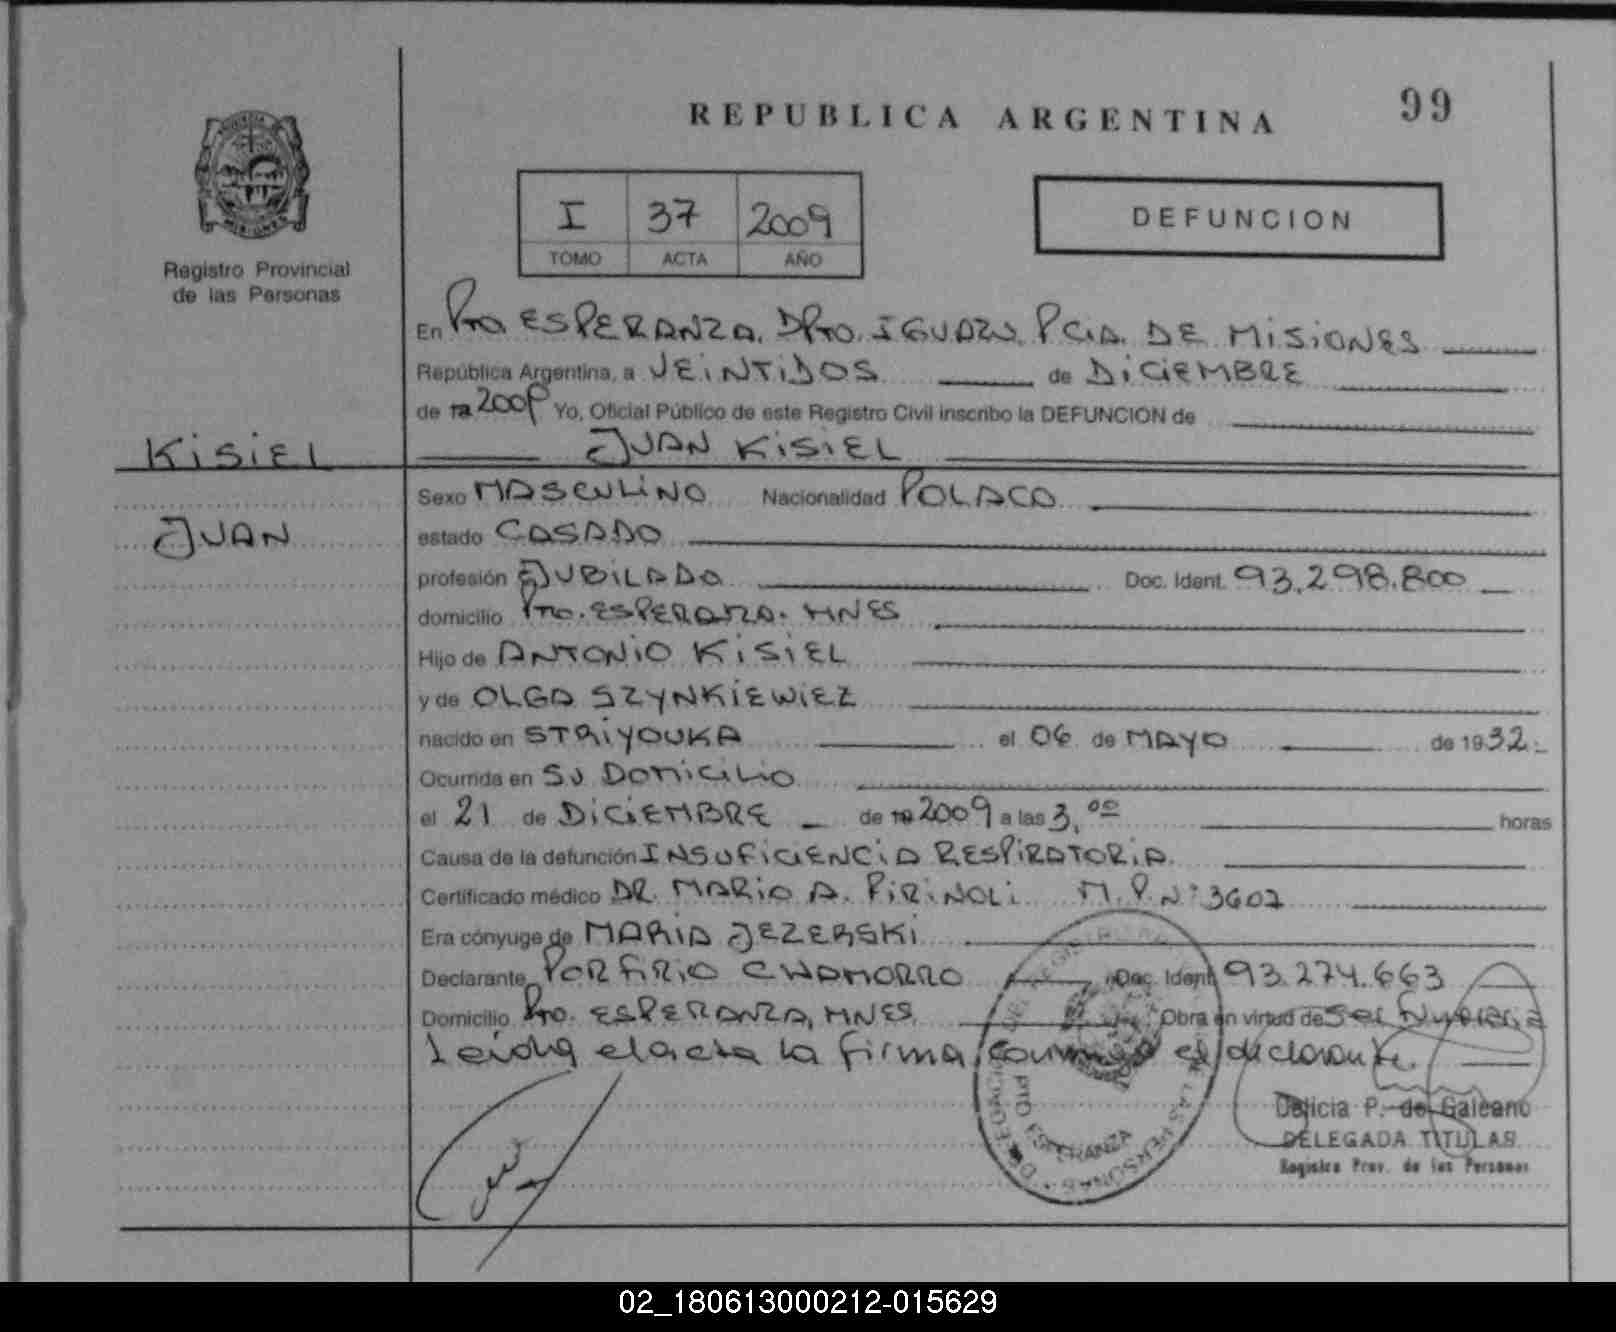 REPUBLICA ARGENTINA 99
PROVINCIA
MISIONES
Registro Provincial
de las Personas
I 37 2009
TOMO ACTA AÑO
DEFUNCION
En Pto. ESPERANZA. DPTO. IGUAZU. PCIA. DE MISIONES
República Argentina, a VEINTIDOS de DICIEMBRE
de 19 2009 Yo, Oficial Público de este Registro Civil inscribo la DEFUNCION de
KISIEL JUAN KISIEL
JUAN
Sexo MASCULINO Nacionalidad POLACO
estado CASADO
profesión JUBILADO Doc. Ident. 93.298.800
domicilio Pto. ESPERANZA. MNES
Hijo de ANTONIO KISIEL
y de OLGA SZYNKIEWIEZ
nacido en STRIYOUKA el 06 de MAYO de 1932.
Ocurrida en SU DOMICILIO
el 21 de DICIEMBRE de 19 2009 a las 3,00 horas
Causa de la defunción INSUFICIENCIA RESPIRATORIA.
Certificado médico DR. MARIO A. PIRINOLI M.P.Nº 3607
Era cónyuge de MARIA JEZERSKI
Declarante PORFIRIO CHAMORRO Doc. Ident. 93.274.663
Domicilio Pto. ESPERANZA, MNES Obra en virtud de ser
Leída el acta la firma conmigo el declarante.
DELEGACION PTO ESPERANZA
REGISTRO DE LAS PERSONAS
Delicia P. de Galeano
DELEGADA TITULAR
Registro Prov. de las Personas
02_180613000212-015629